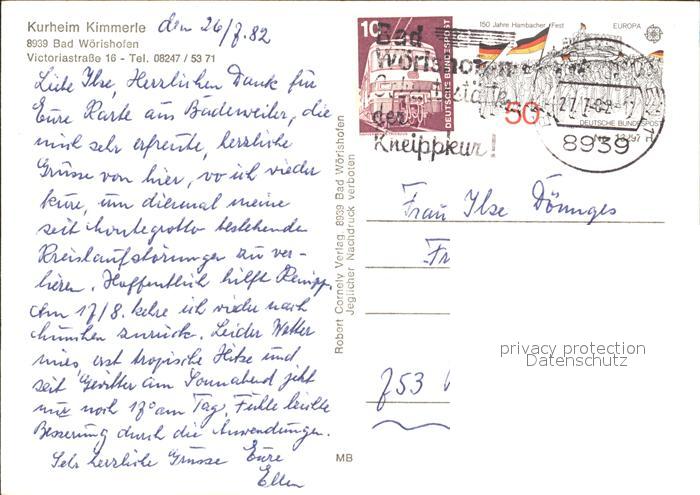 Kurheim Kimmerle
8939 Bad Wörishofen
Victoriastraße 16 - Tel. 08247 / 53 71
den 26/7.82
Liebe Ilse, Herzlichen Dank für
Eure Karte aus Badenweiler, die
mich sehr erfreute, herzliche
Grüsse von hier, wo ich wieder
kure, um diesmal meine
seit Montegrotto bestehende
Kreislaufstörungen zu ver-
lieren. Hoffentlich hilft Kneipp.
Am 17/8. kehre ich wieder nach
München zurück. Leider Wetter
mies, erst tropische Hitze und
seit Gewitter am Sonnabend jetzt
nur noch 17° am Tag. Fühle leichte
Besserung durch die Anwendungen.
Sehr herzliche Grüsse Eure
Ellen
Robert Cornely Verlag, 8939 Bad Wörishofen
Jeglicher Nachdruck verboten
MB
10
DEUTSCHE BUNDESPOST
150 Jahre Hambacher Fest
EUROPA
50
DEUTSCHE BUNDESPOST
Bad
Wörishofen
der
Kneippkur!
27.7.82
8939
Frau Ilse Dönnges
Fr
753
privacy protection
Datenschutz